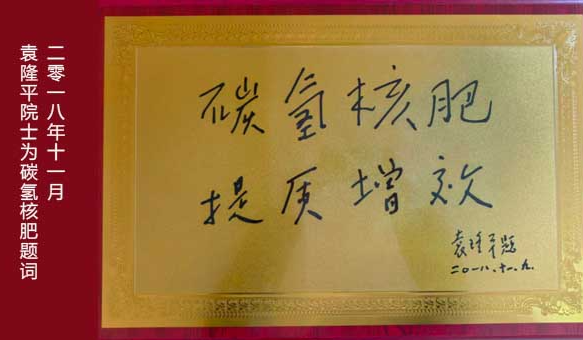 二零一八年十一月
袁隆平院士为碳氢核肥题词
碳氢核肥
提质增效
袁隆平题
二〇一八、十一、九.